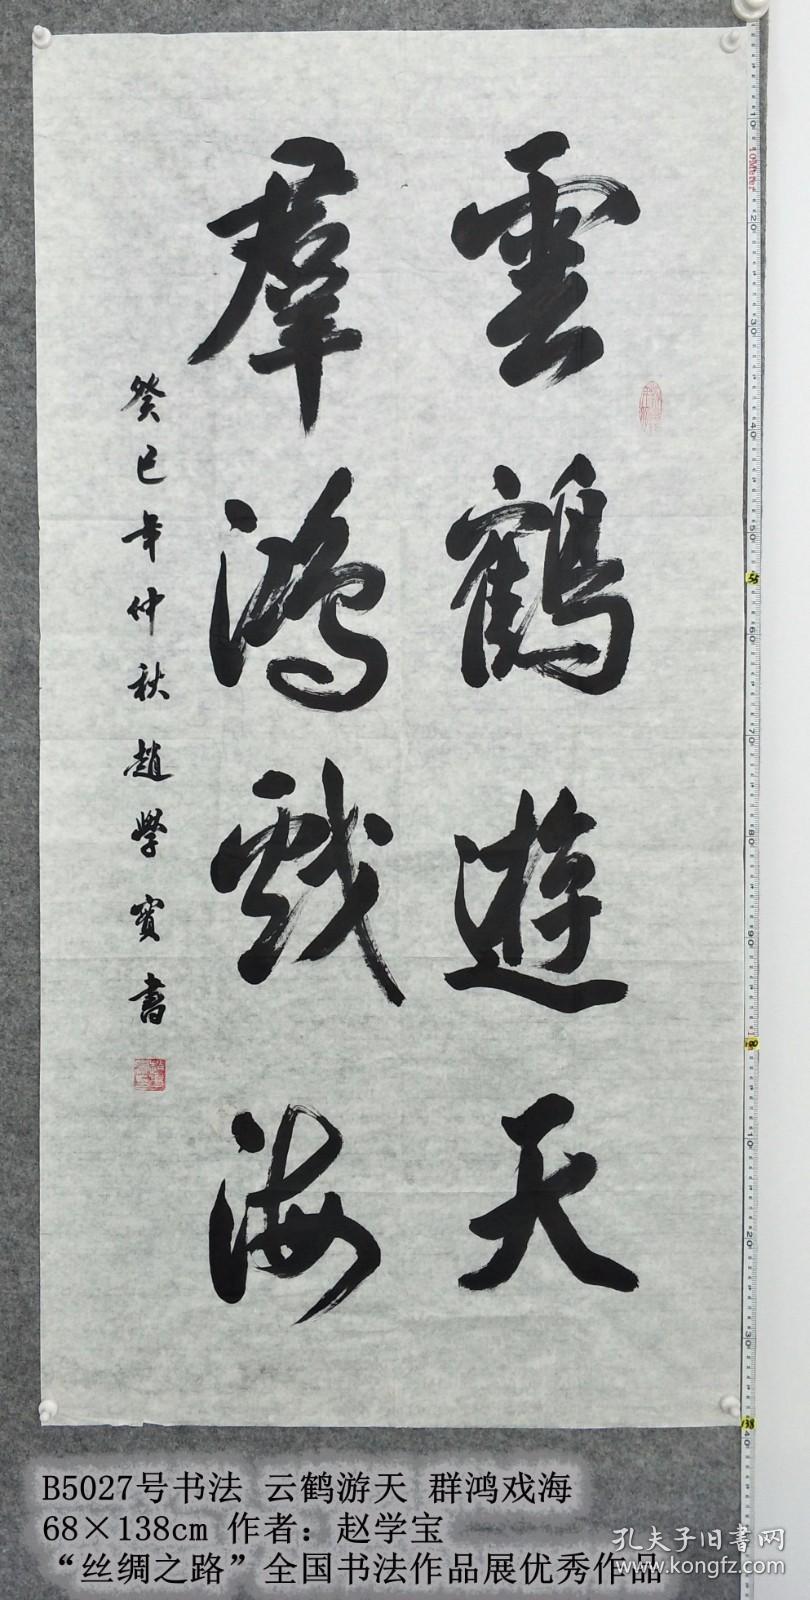 雲鶴遊天
羣鴻戲海
癸巳年仲秋趙學寶書
B5027号书法 云鹤游天 群鸿戏海
68×138cm 作者：赵学宝
“丝绸之路”全国书法作品展优秀作品
孔夫子旧书网
www.kongfz.com